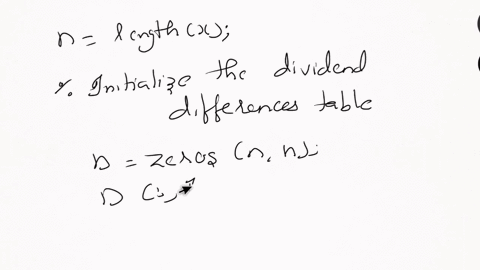 n = length(x);
%. Initialize the dividend
differences table
D = zeros (n, n);
D (:,